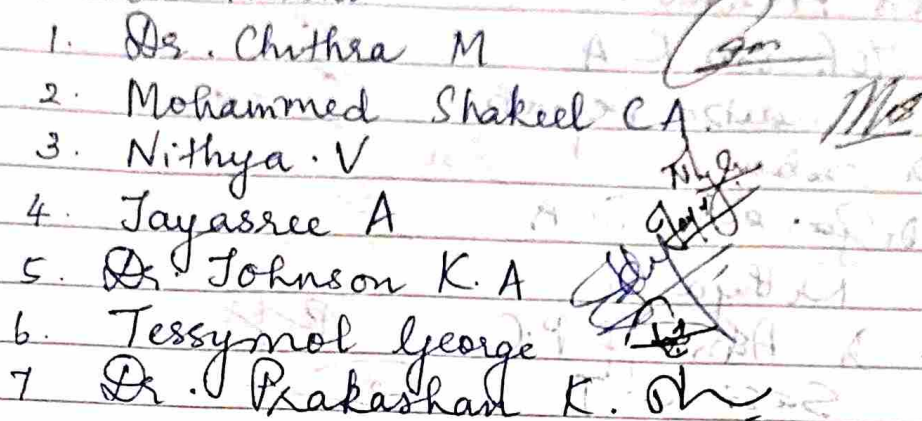 1. Dr. Chithra M
2. Mohammed Shakeel C A.
3. Nithya. V
4. Jayassree A
5. Dr. Johnson K. A
6. Tessymol George
7 Dr. Prakashan K.